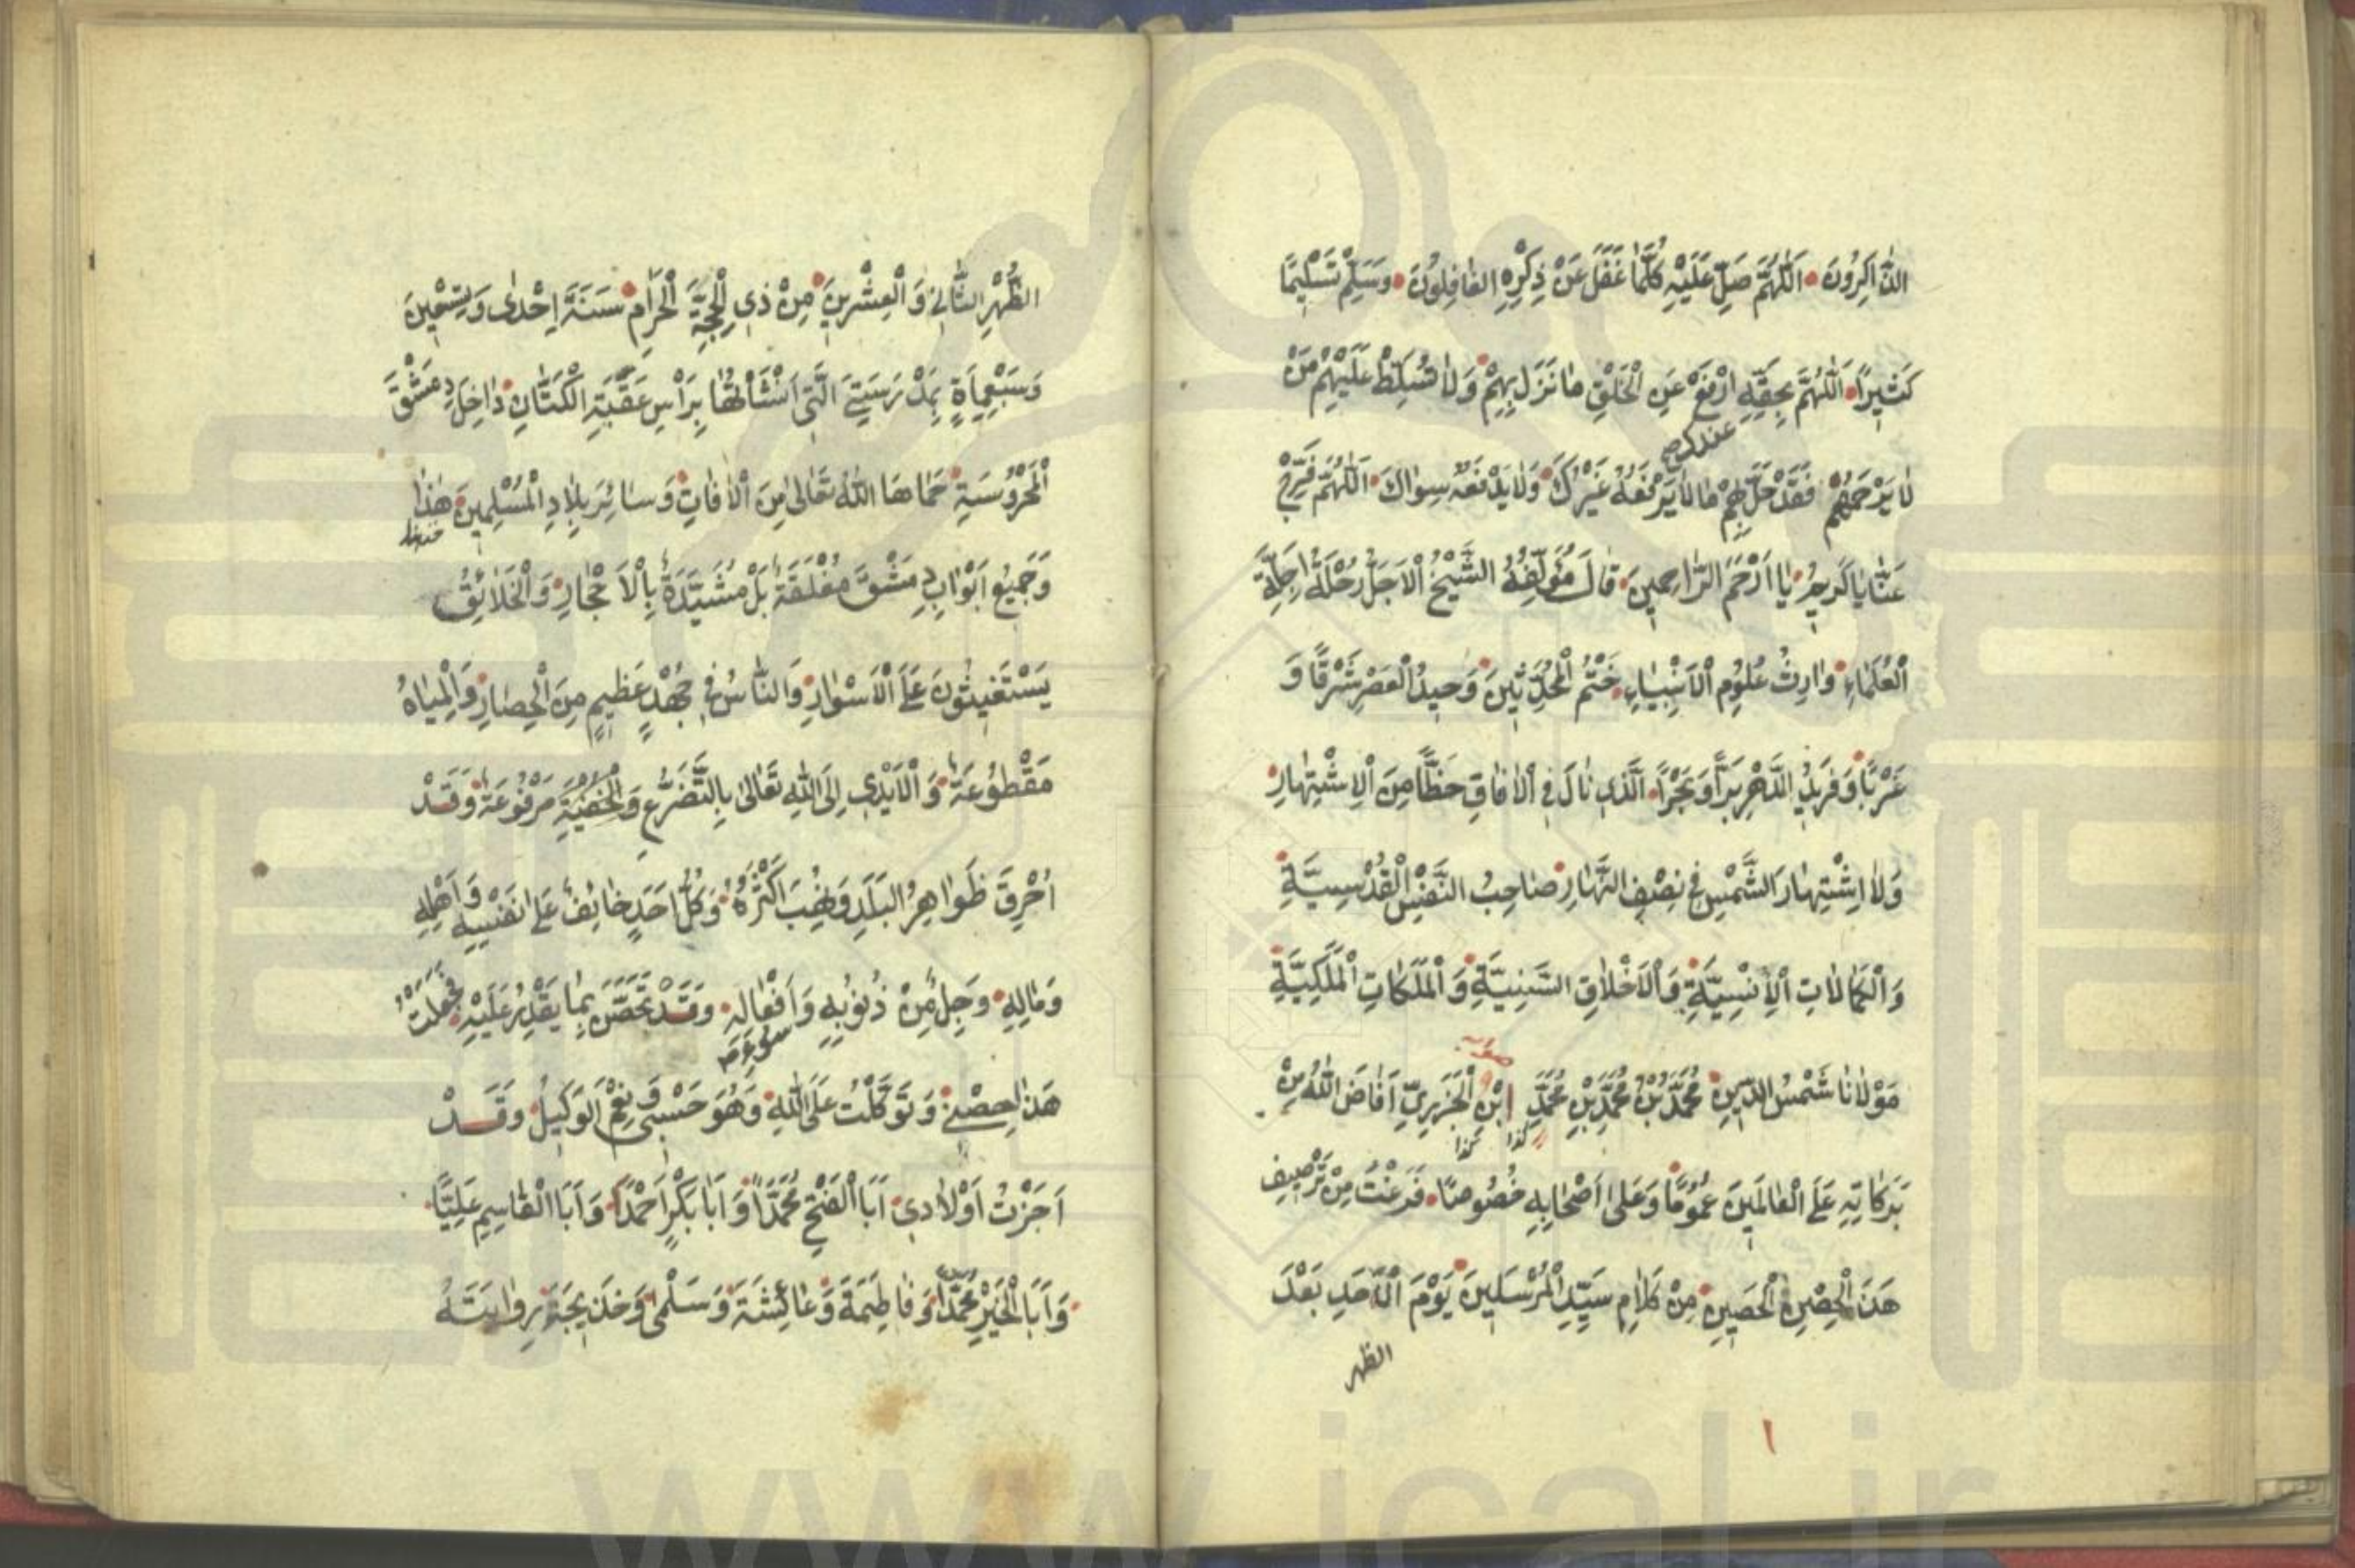 الذَّاكِرُونَ اَللّٰهُمَّ صَلِّ عَلَيْهِ كُلَّمَا غَفَلَ عَنْ ذِكْرِهِ الْغَافِلُونَ وَسَلِّمْ تَسْلِيمًا
كَثِيرًا اَللّٰهُمَّ بِحَقِّهِ ارْفَعْ عَنِ الْخَلْقِ مَا نَزَلَ بِهِمْ وَلَا تُسَلِّطْ عَلَيْهِمْ مَنْ
لَا يَرْحَمُهُمْ فَقَدْ حَلَّ بِهِمْ مَا لَا يَرْفَعُهُ غَيْرُكَ وَلَا يَدْفَعُهُ سِوَاكَ اَللّٰهُمَّ فَرِّجْ
عَنَّا يَا كَرِيمُ يَا اَرْحَمَ الرَّاحِمِينَ قَالَ مُؤَلِّفُهُ الشَّيْخُ الْاَجَلُّ رُحْلَةُ اَجِلَّةِ
الْعُلَمَاءِ وَارِثُ عُلُومِ الْاَنْبِيَاءِ خَتْمُ الْمُحَدِّثِينَ وَحِيدُ الْعَصْرِ شَرْقًا وَ
غَرْبًا وَفَرِيدُ الدَّهْرِ بَرًّا وَبَحْرًا الَّذِي نَالَ فِي الْاٰفَاقِ حَظًّا مِنَ الْاِشْتِهَارِ
وَلَا اشْتِهَارَ الشَّمْسِ فِي نِصْفِ النَّهَارِ صَاحِبُ النَّفْسِ الْقُدْسِيَّةِ
وَالْكَمَالَاتِ الْاِنْسِيَّةِ وَالْاَخْلَاقِ السَّنِيَّةِ وَالْمَلَكَاتِ الْمَلَكِيَّةِ
مَوْلَانَا شَمْسُ الدِّينِ مُحَمَّدُ بْنُ مُحَمَّدِ بْنِ مُحَمَّدِ ابْنِ الْجَزَرِيِّ اَفَاضَ اللّٰهُ مِنْ
كذا كذا
بَرَكَاتِهِ عَلَى الْعَالَمِينَ عُمُومًا وَعَلَى اَصْحَابِهِ خُصُوصًا فَرَغْتُ مِنْ تَرْصِيفِ
هَذَا الْحِصْنِ الْحَصِينِ مِنْ كَلَامِ سَيِّدِ الْمُرْسَلِينَ يَوْمَ الْاَحَدِ بَعْدَ
الظهر
١
الظُّهْرِ الثَّانِي وَالْعِشْرِينَ مِنْ ذِي الْحِجَّةِ الْحَرَامِ سَنَةَ اِحْدٰى وَتِسْعِينَ
وَسَبْعِمِاَةٍ بِمَدْرَسَتِيَ الَّتِي اَنْشَأْتُهَا بِرَأْسِ عَقَبَةِ الْكَتَّانِ دَاخِلَ دِمَشْقَ
الْمَحْرُوسَةِ حَمَاهَا اللّٰهُ تَعَالٰى مِنَ الْاٰفَاتِ وَسَائِرَ بِلَادِ الْمُسْلِمِينَ هٰذَا
وَجَمِيعُ اَبْوَابِ دِمَشْقَ مُغْلَقَةٌ بَلْ مُشَيَّدَةٌ بِالْاَحْجَارِ وَالْخَلَائِقُ
يَسْتَغِيثُونَ عَلَى الْاَسْوَارِ وَالنَّاسُ فِي جُهْدٍ عَظِيمٍ مِنَ الْحِصَارِ وَالْمِيَاهُ
مَقْطُوعَةٌ وَالْاَيْدِي اِلَى اللّٰهِ تَعَالٰى بِالتَّضَرُّعِ وَالْخُفْيَةِ مَرْفُوعَةٌ وَقَدْ
اُحْرِقَ ظَوَاهِرُ الْبَلَدِ وَنُهِبَ اَكْثَرُهُ وَكُلُّ اَحَدٍ خَائِفٌ عَلَى نَفْسِهِ وَاَهْلِهِ
وَمَالِهِ وَجِلٌ مِنْ ذُنُوبِهِ وَاَفْعَالِهِ وَقَدْ تَحَصَّنَ بِمَا يَقْدِرُ عَلَيْهِ فَجَعَلْتُ
هَذَا حِصْنِي وَتَوَكَّلْتُ عَلَى اللّٰهِ وَهُوَ حَسْبِي وَنِعْمَ الْوَكِيلُ وَقَدْ
اَجَزْتُ اَوْلَادِي اَبَا الْفَتْحِ مُحَمَّدًا وَاَبَا بَكْرٍ اَحْمَدَ وَاَبَا الْقَاسِمِ عَلِيًّا
وَاَبَا الْخَيْرِ مُحَمَّدًا وَفَاطِمَةَ وَعَائِشَةَ وَسَلْمٰى وَخَدِيجَةَ رِوَايَتَهُ